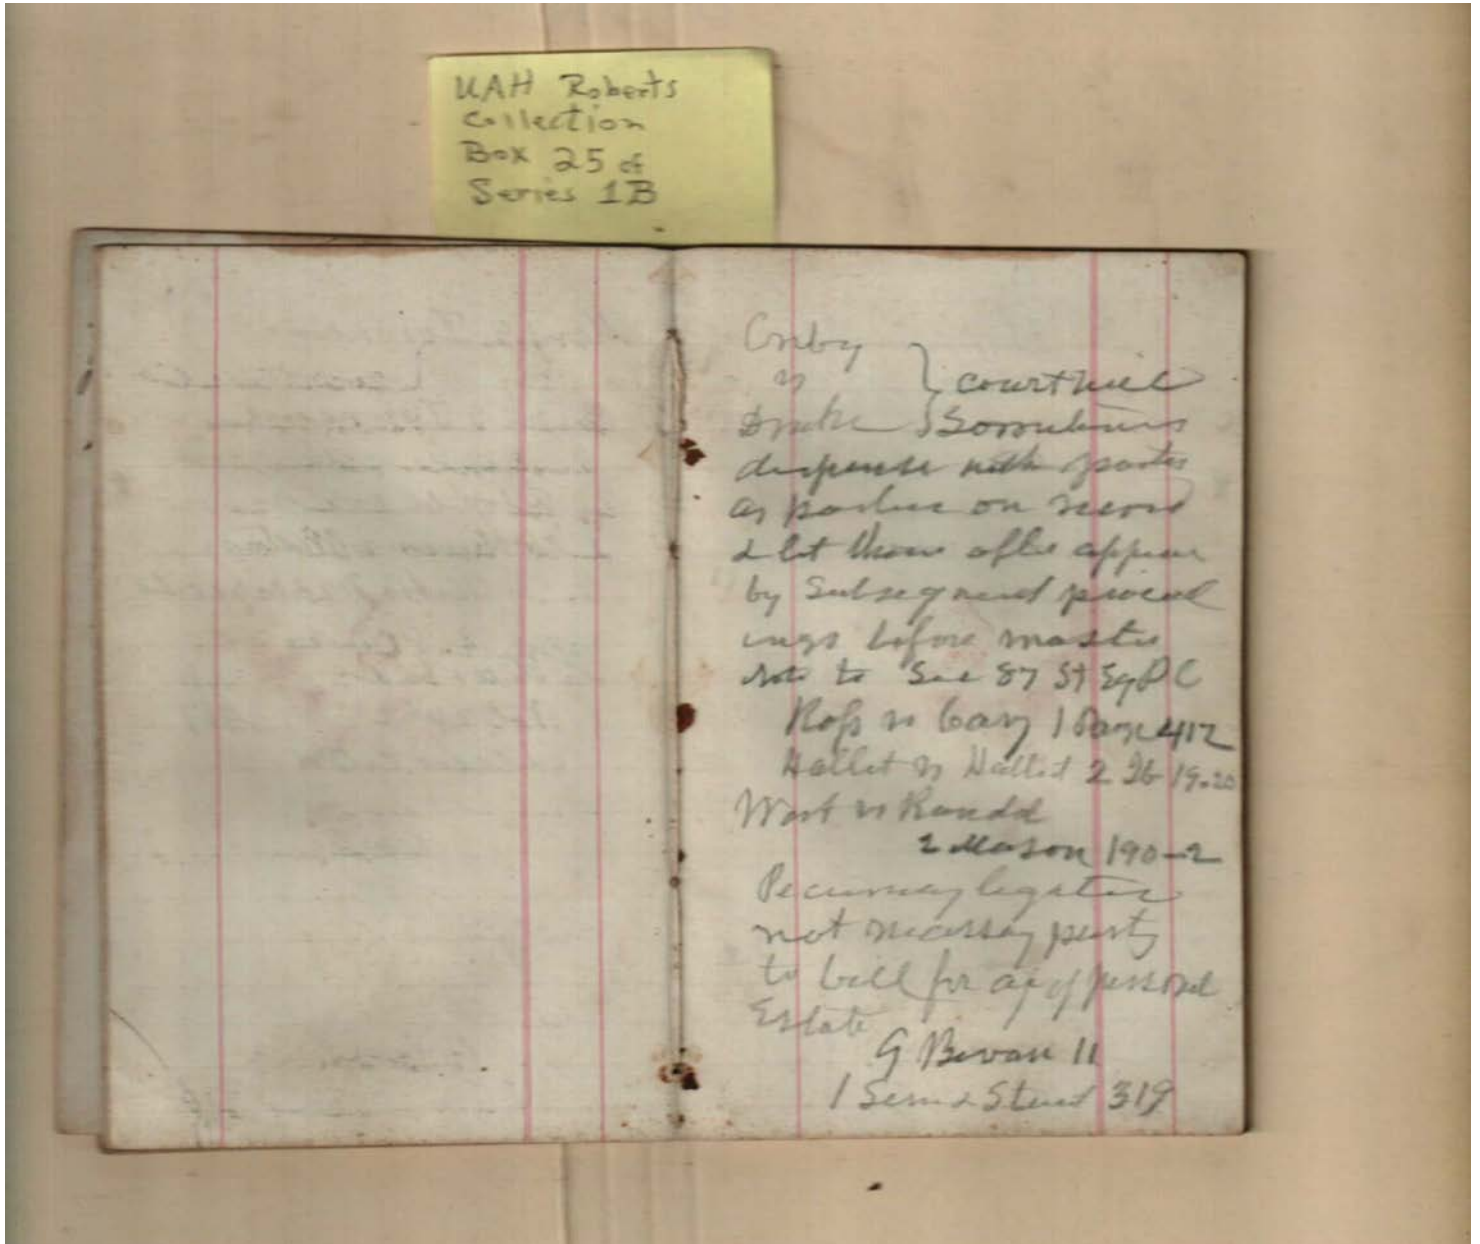 UAH Roberts
Collection
Box 25 of
Series 1B
vs
court will
Drake Sometimes
dispense with parties
as parties on record
& let them after appear
by Subsequent proceed
ings before master
note to Sec 87 St Eq Pl
Ross vs Cary 1 Paige 417
Hallet vs Hallet 2 Ib 19-20
West vs Randal
2 Mason 190-2
Pecuniary legatee
not necessary party
to bill for a/c of personal
Estate
319